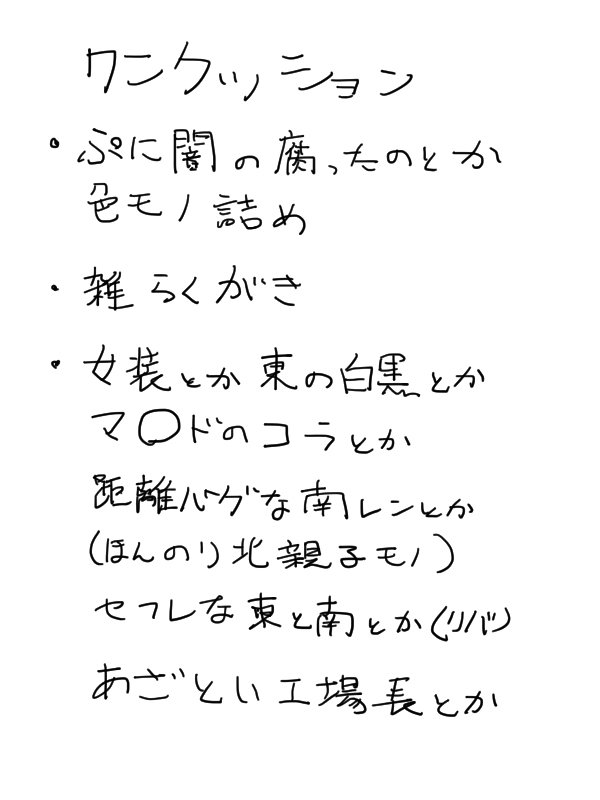 ワンクッション
・ぷに闇の腐ったのとか
色モノ詰め
・雑らくがき
・女装とか東の白黒とか
マ〇ドのコラとか
距離バグな南レンとか
(ほんのり北親子モノ)
セフレな東と南とか(リバ)
あざとい工場長とか